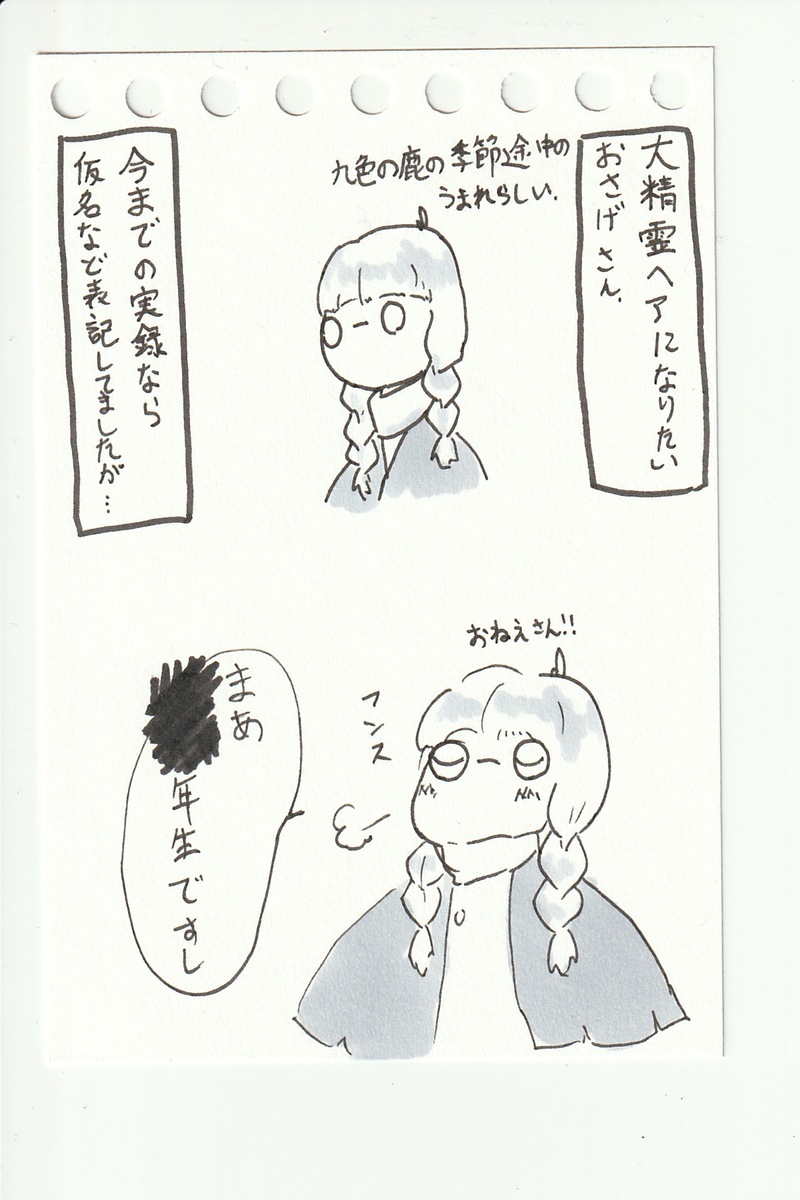 大精霊ヘアになりたい
おさげさん。
九色の鹿の季節途中の
うまれらしい.
今までの実録なら
仮名など表記してましたが…
おねえさん!!
フンス
まあ
年生ですし